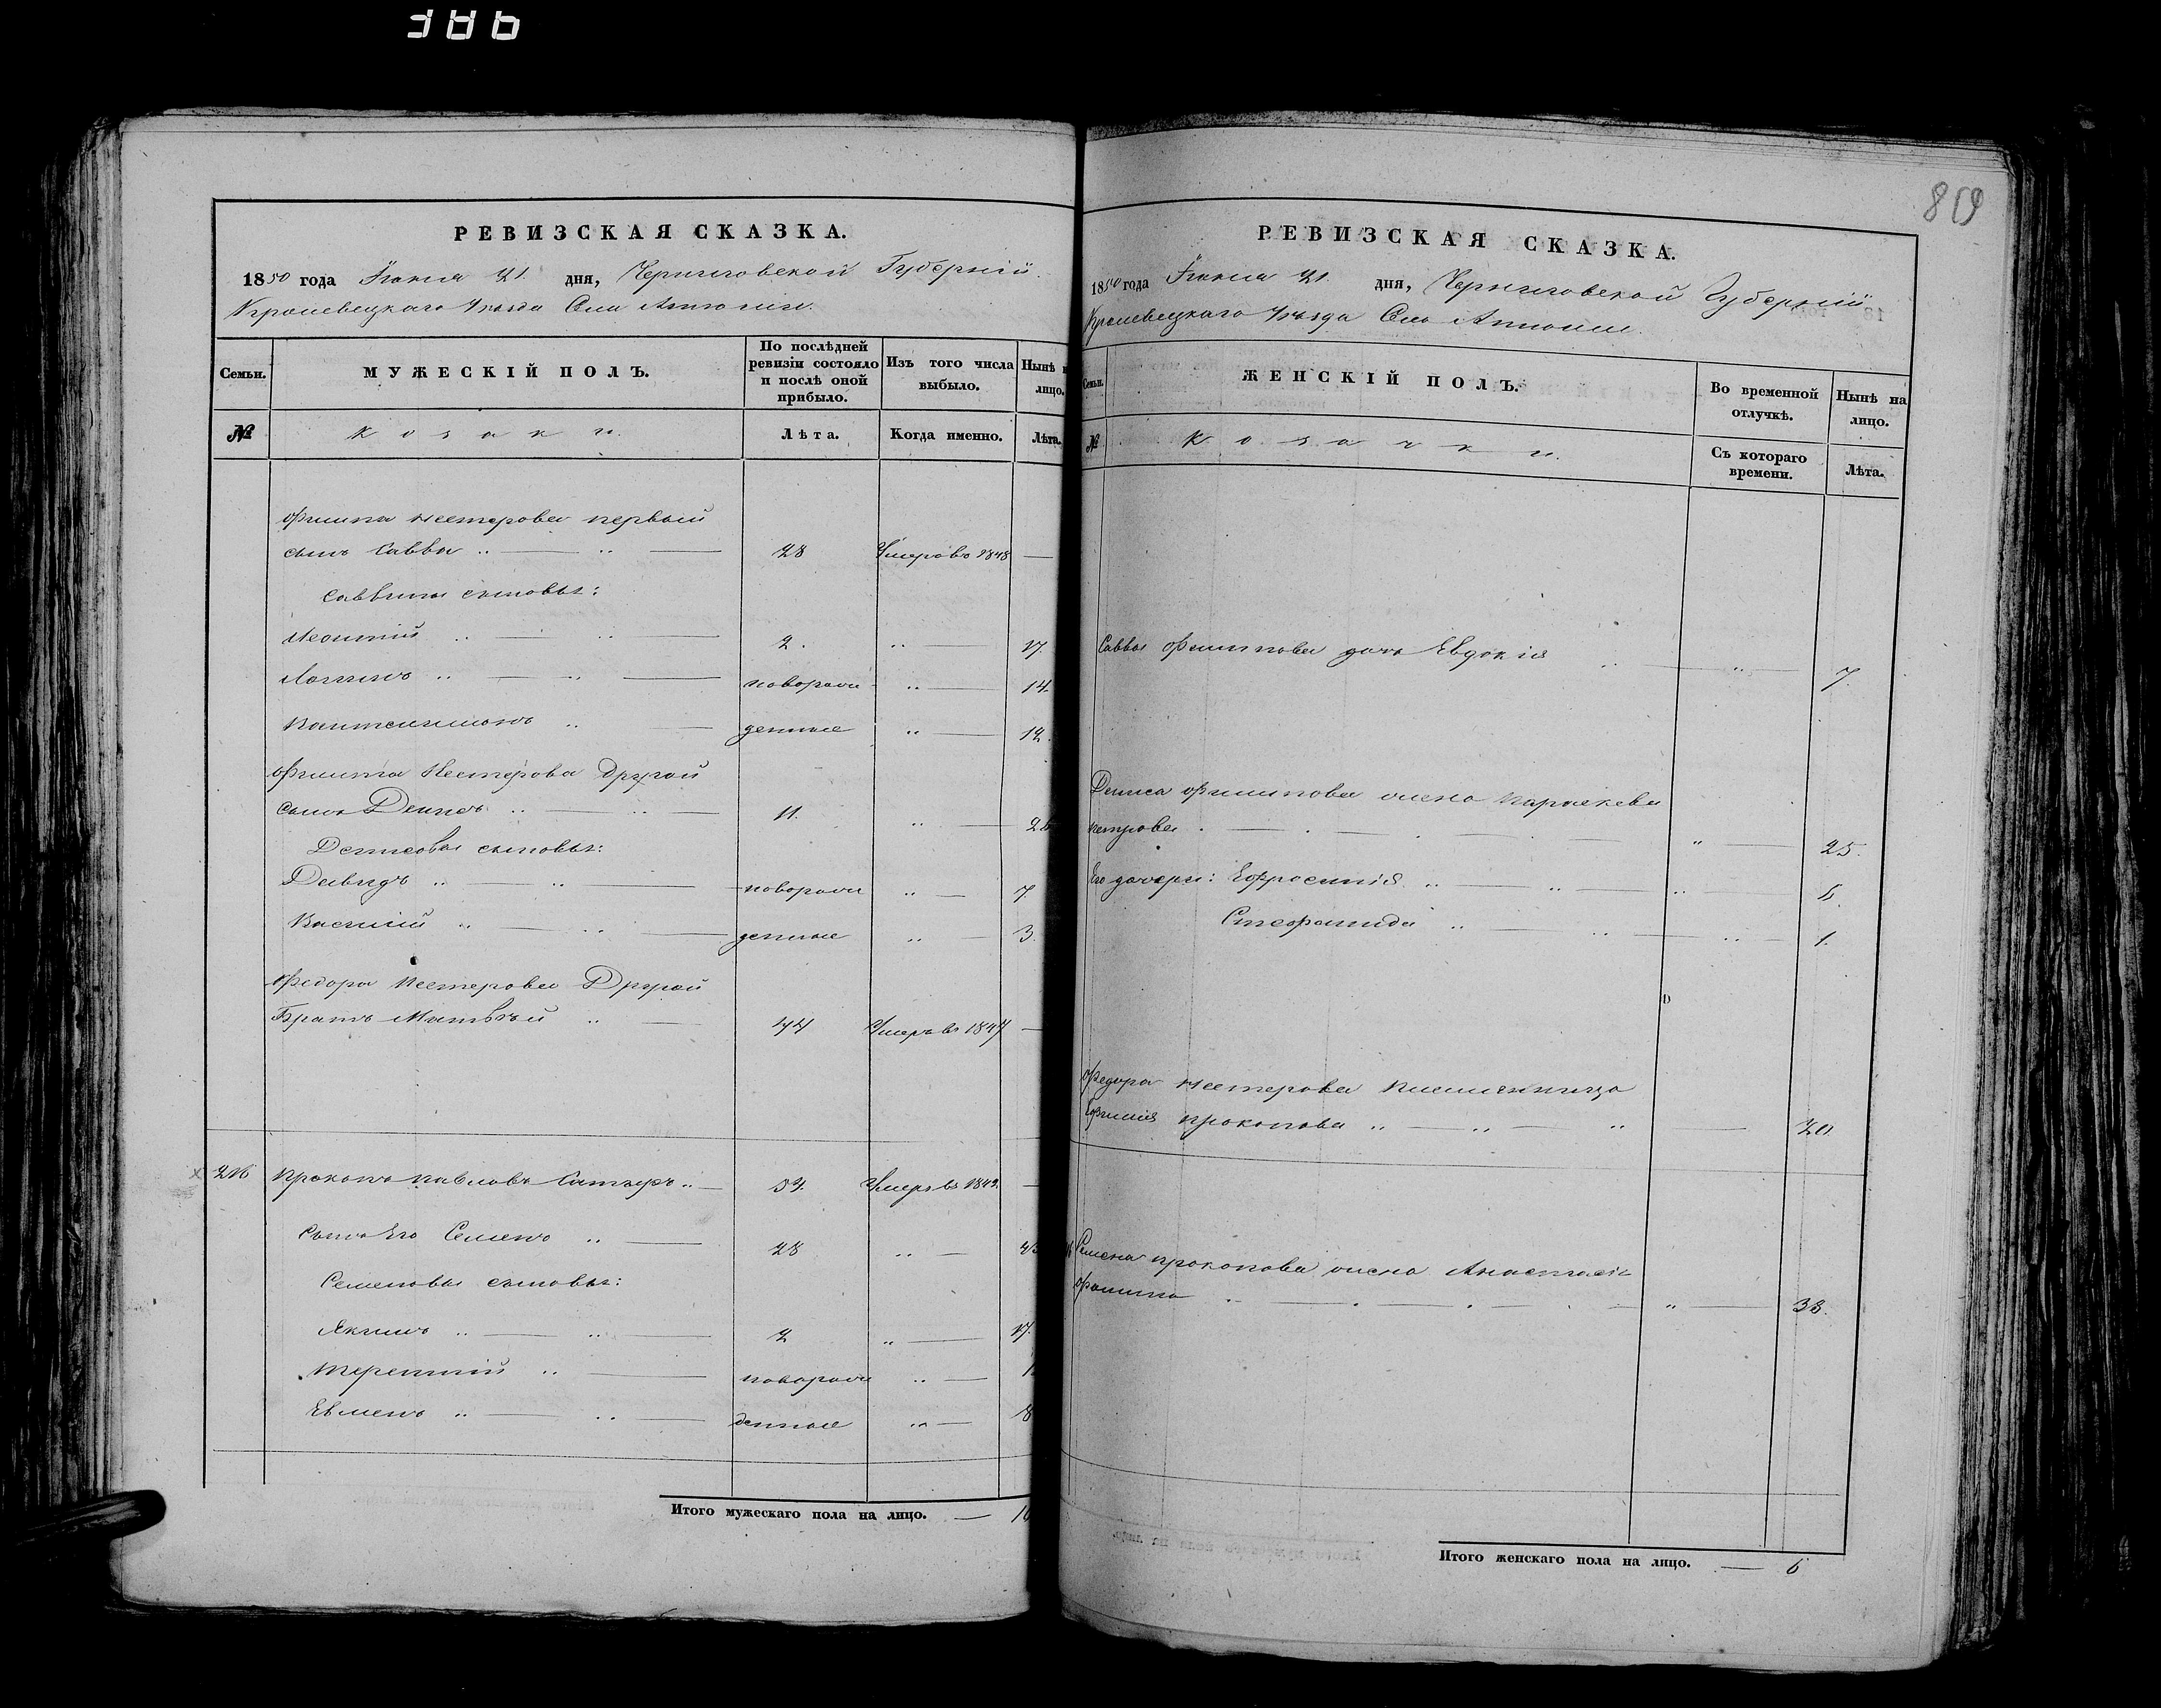 386
РЕВИЗСКАЯ СКАЗКА.
1850 года Іюня 21 дня, Черниговской Губерніи
Кролевецкаго Уезда Села
Семьи.
МУЖЕСКІЙ ПОЛЪ.
По послѣдней ревизіи состояло и послѣ оной прибыло.
Изъ того числа выбыло.
Нынѣ
лицо.
№
Козаки.
Лѣта.
Когда именно.
Лѣта.
Филипа Нестерова первый
сынъ Савва 28 Умеръ въ 1848
Саввины сыновья:
Леонтій 2. 17
Логинъ новорож 14
Пантелимонъ денные 12.
Филипа Нестерова Другой
сынъ Денисъ 11.
Денисовы сыновья:
Давидъ новорож 7.
Василій денные 3.
Федора Нестерова Другой
Братъ Матвѣй 44 Умеръ въ 1847
216 Прокопъ Павловъ Умеръ въ
Сынъ Его Семенъ 28
Семеновы сыновья:
Якимъ 2 17.
Терентій новорож
Евменъ денные 8
Итого мужескаго пола на лицо. 10
859
РЕВИЗСКАЯ СКАЗКА.
1850 года Іюня 21 дня, Черниговской Губерніи
Кролевецкаго Уезда Села
Семьи.
ЖЕНСКІЙ ПОЛЪ.
Во временной отлучкѣ.
Нынѣ на лицо.
№
Козачки.
Съ котораго времени.
Лѣта.
Саввы Филипова дочь Евдокія 7.
Дениса Филипова жена Параскева
Петрова 25.
Его дочери: Ефросинія
Стефанида 1.
Федора Нестерова племянница
Ефимія Прокопова 20
Семена Прокопова жена Анастасія
38.
Итого женскаго пола на лицо. 6